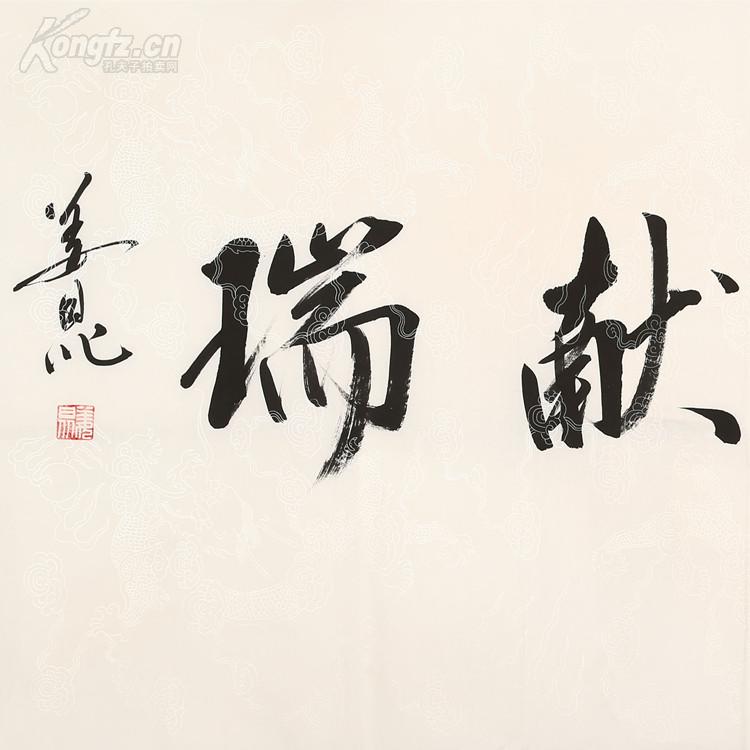 Kongfz.cn
孔夫子拍卖网
献瑞
姜昆